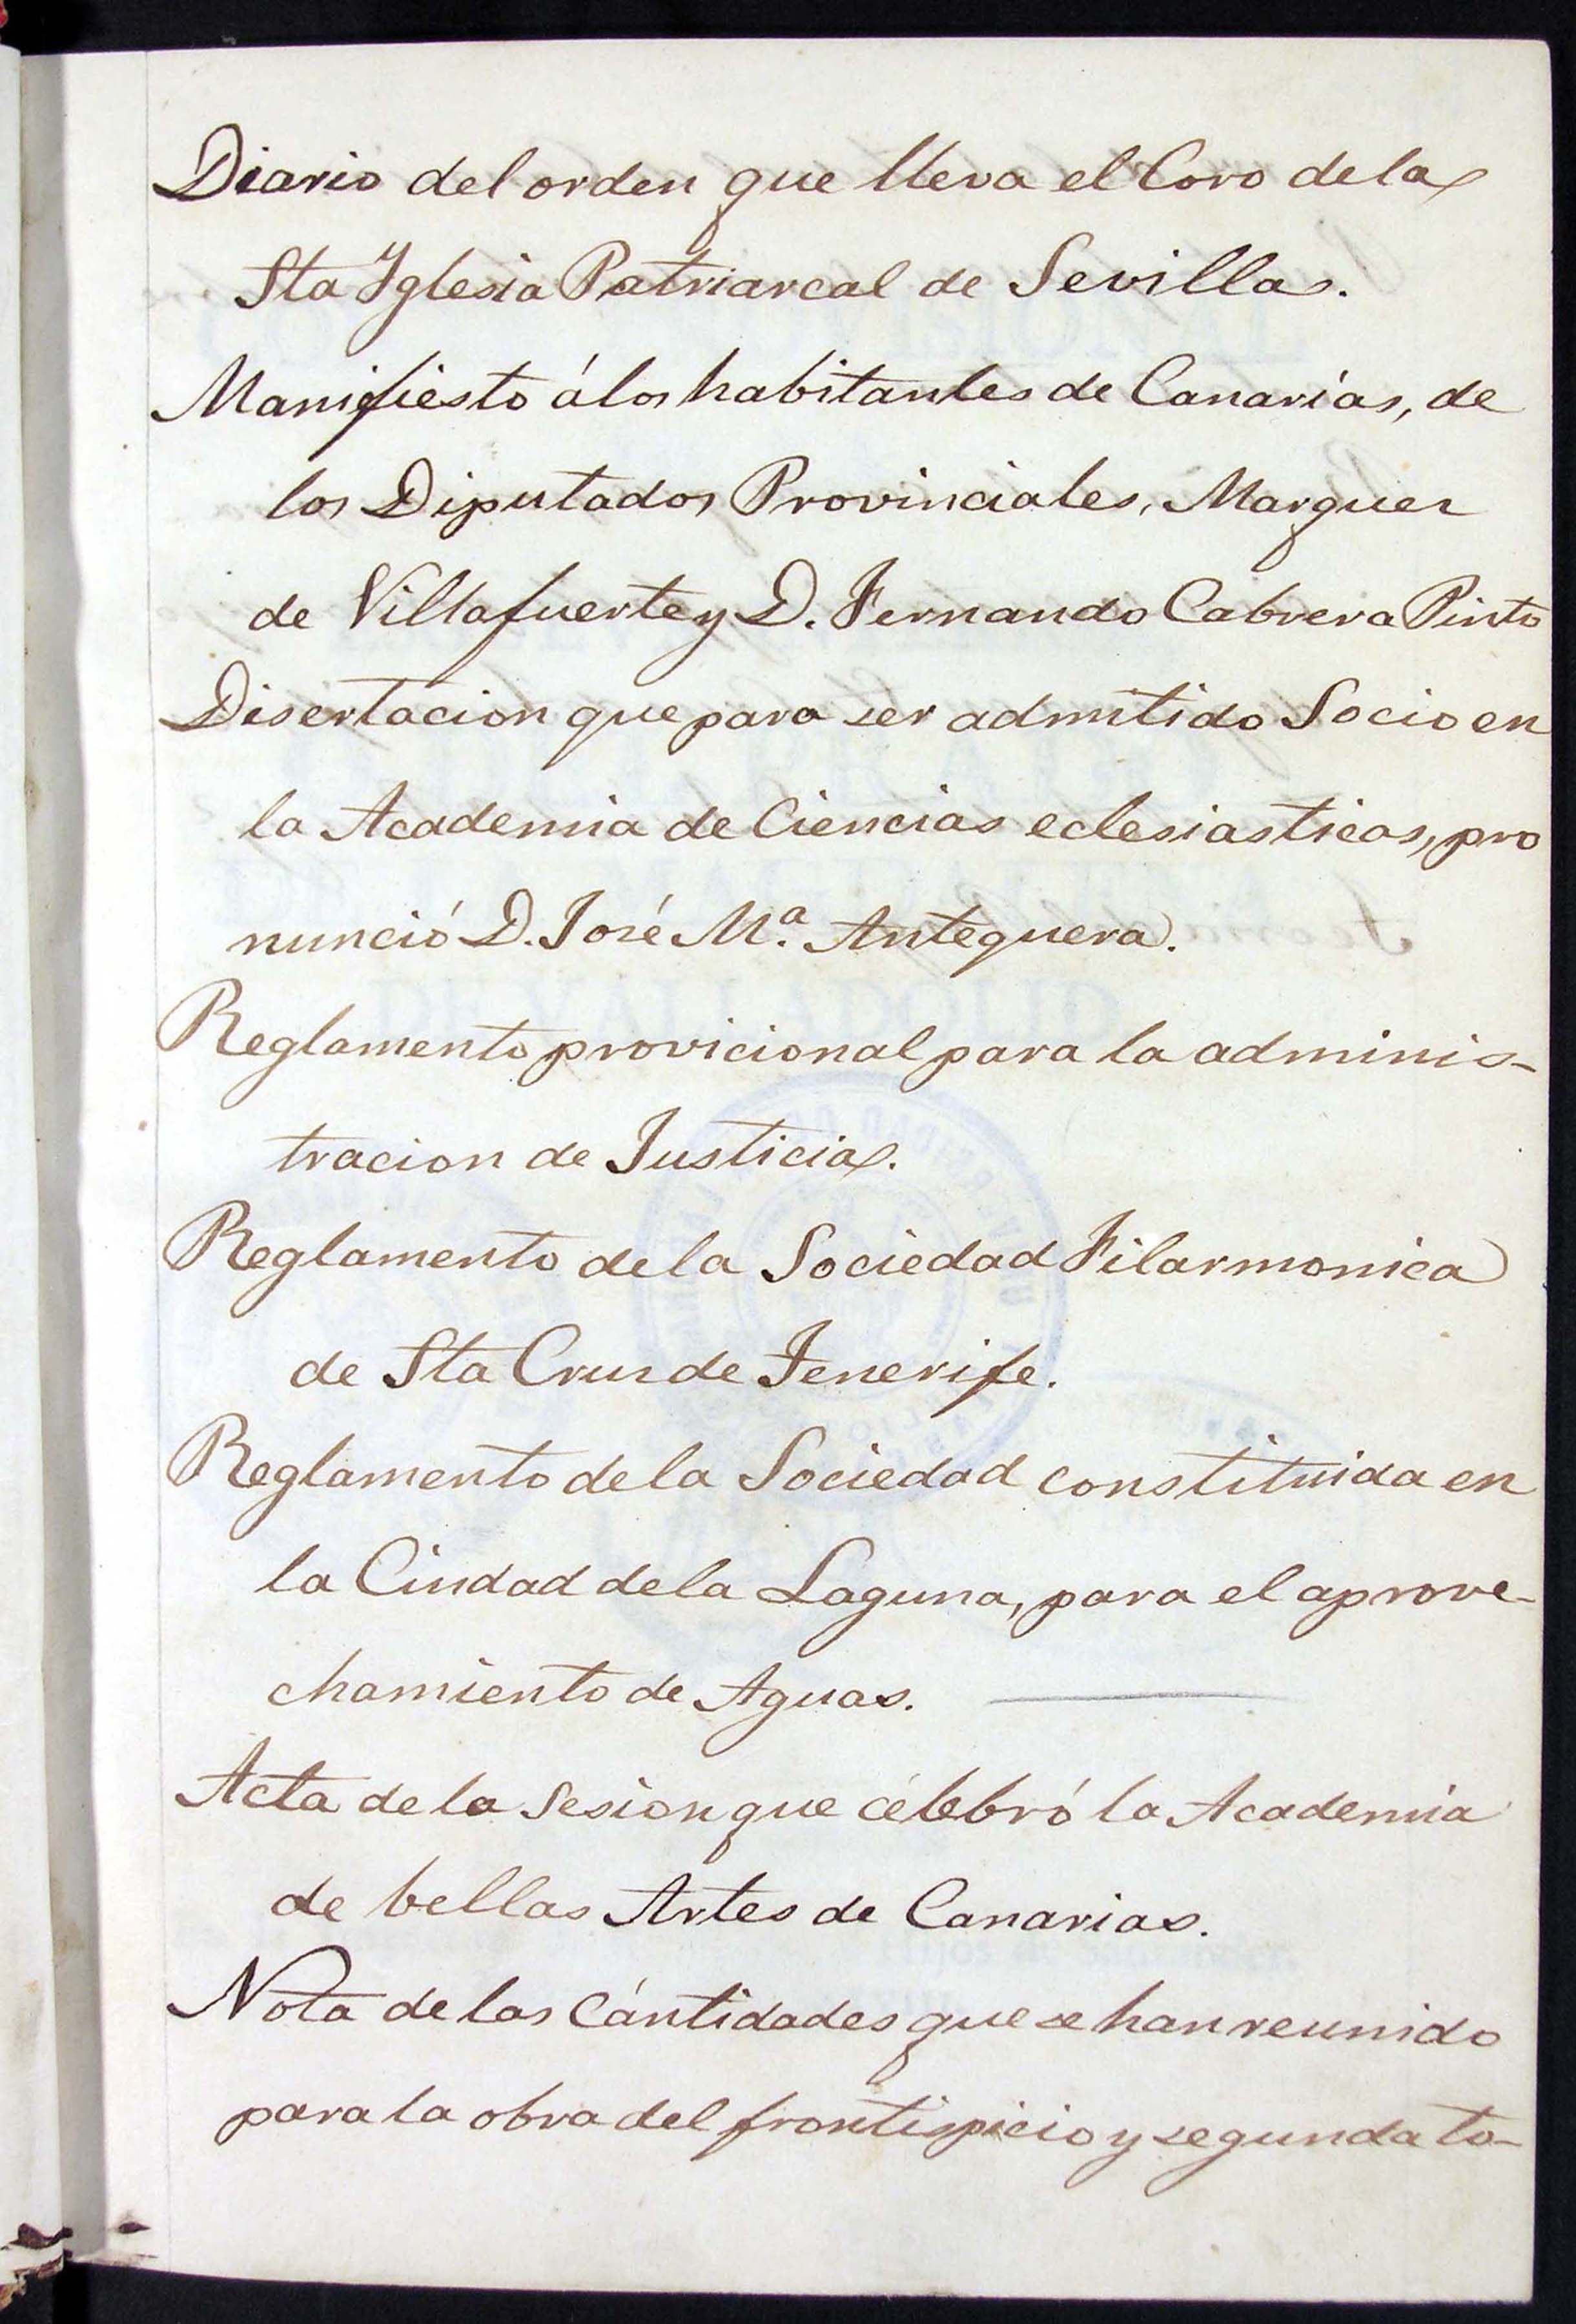 Diario del orden que lleva el Coro de la
Sta Yglesia Patriarcal de Sevilla.
Manifiesto á los habitantes de Canarias, de
los Diputados Provinciales, Marques
de Villafuerte y D. Fernando Cabrera Pinto
Disertacion que para ser admitido Socio en
la Academia de Ciencias eclesiasticas, pro
nunció D. José Mª. Antequera.
Reglamento provicional para la adminis-
tracion de Justicia.
Reglamento de la Sociedad Filarmonica
de Sta Cruz de Tenerife.
Reglamento de la Sociedad constituida en
la Ciudad de la Laguna, para el aprove-
chamiento de Aguas.
Acta de la Sesion que celebró la Academia
de bellas Artes de Canarias.
Nota de las Cantidades que se han reunido
para la obra del frontispicio y segunda to-